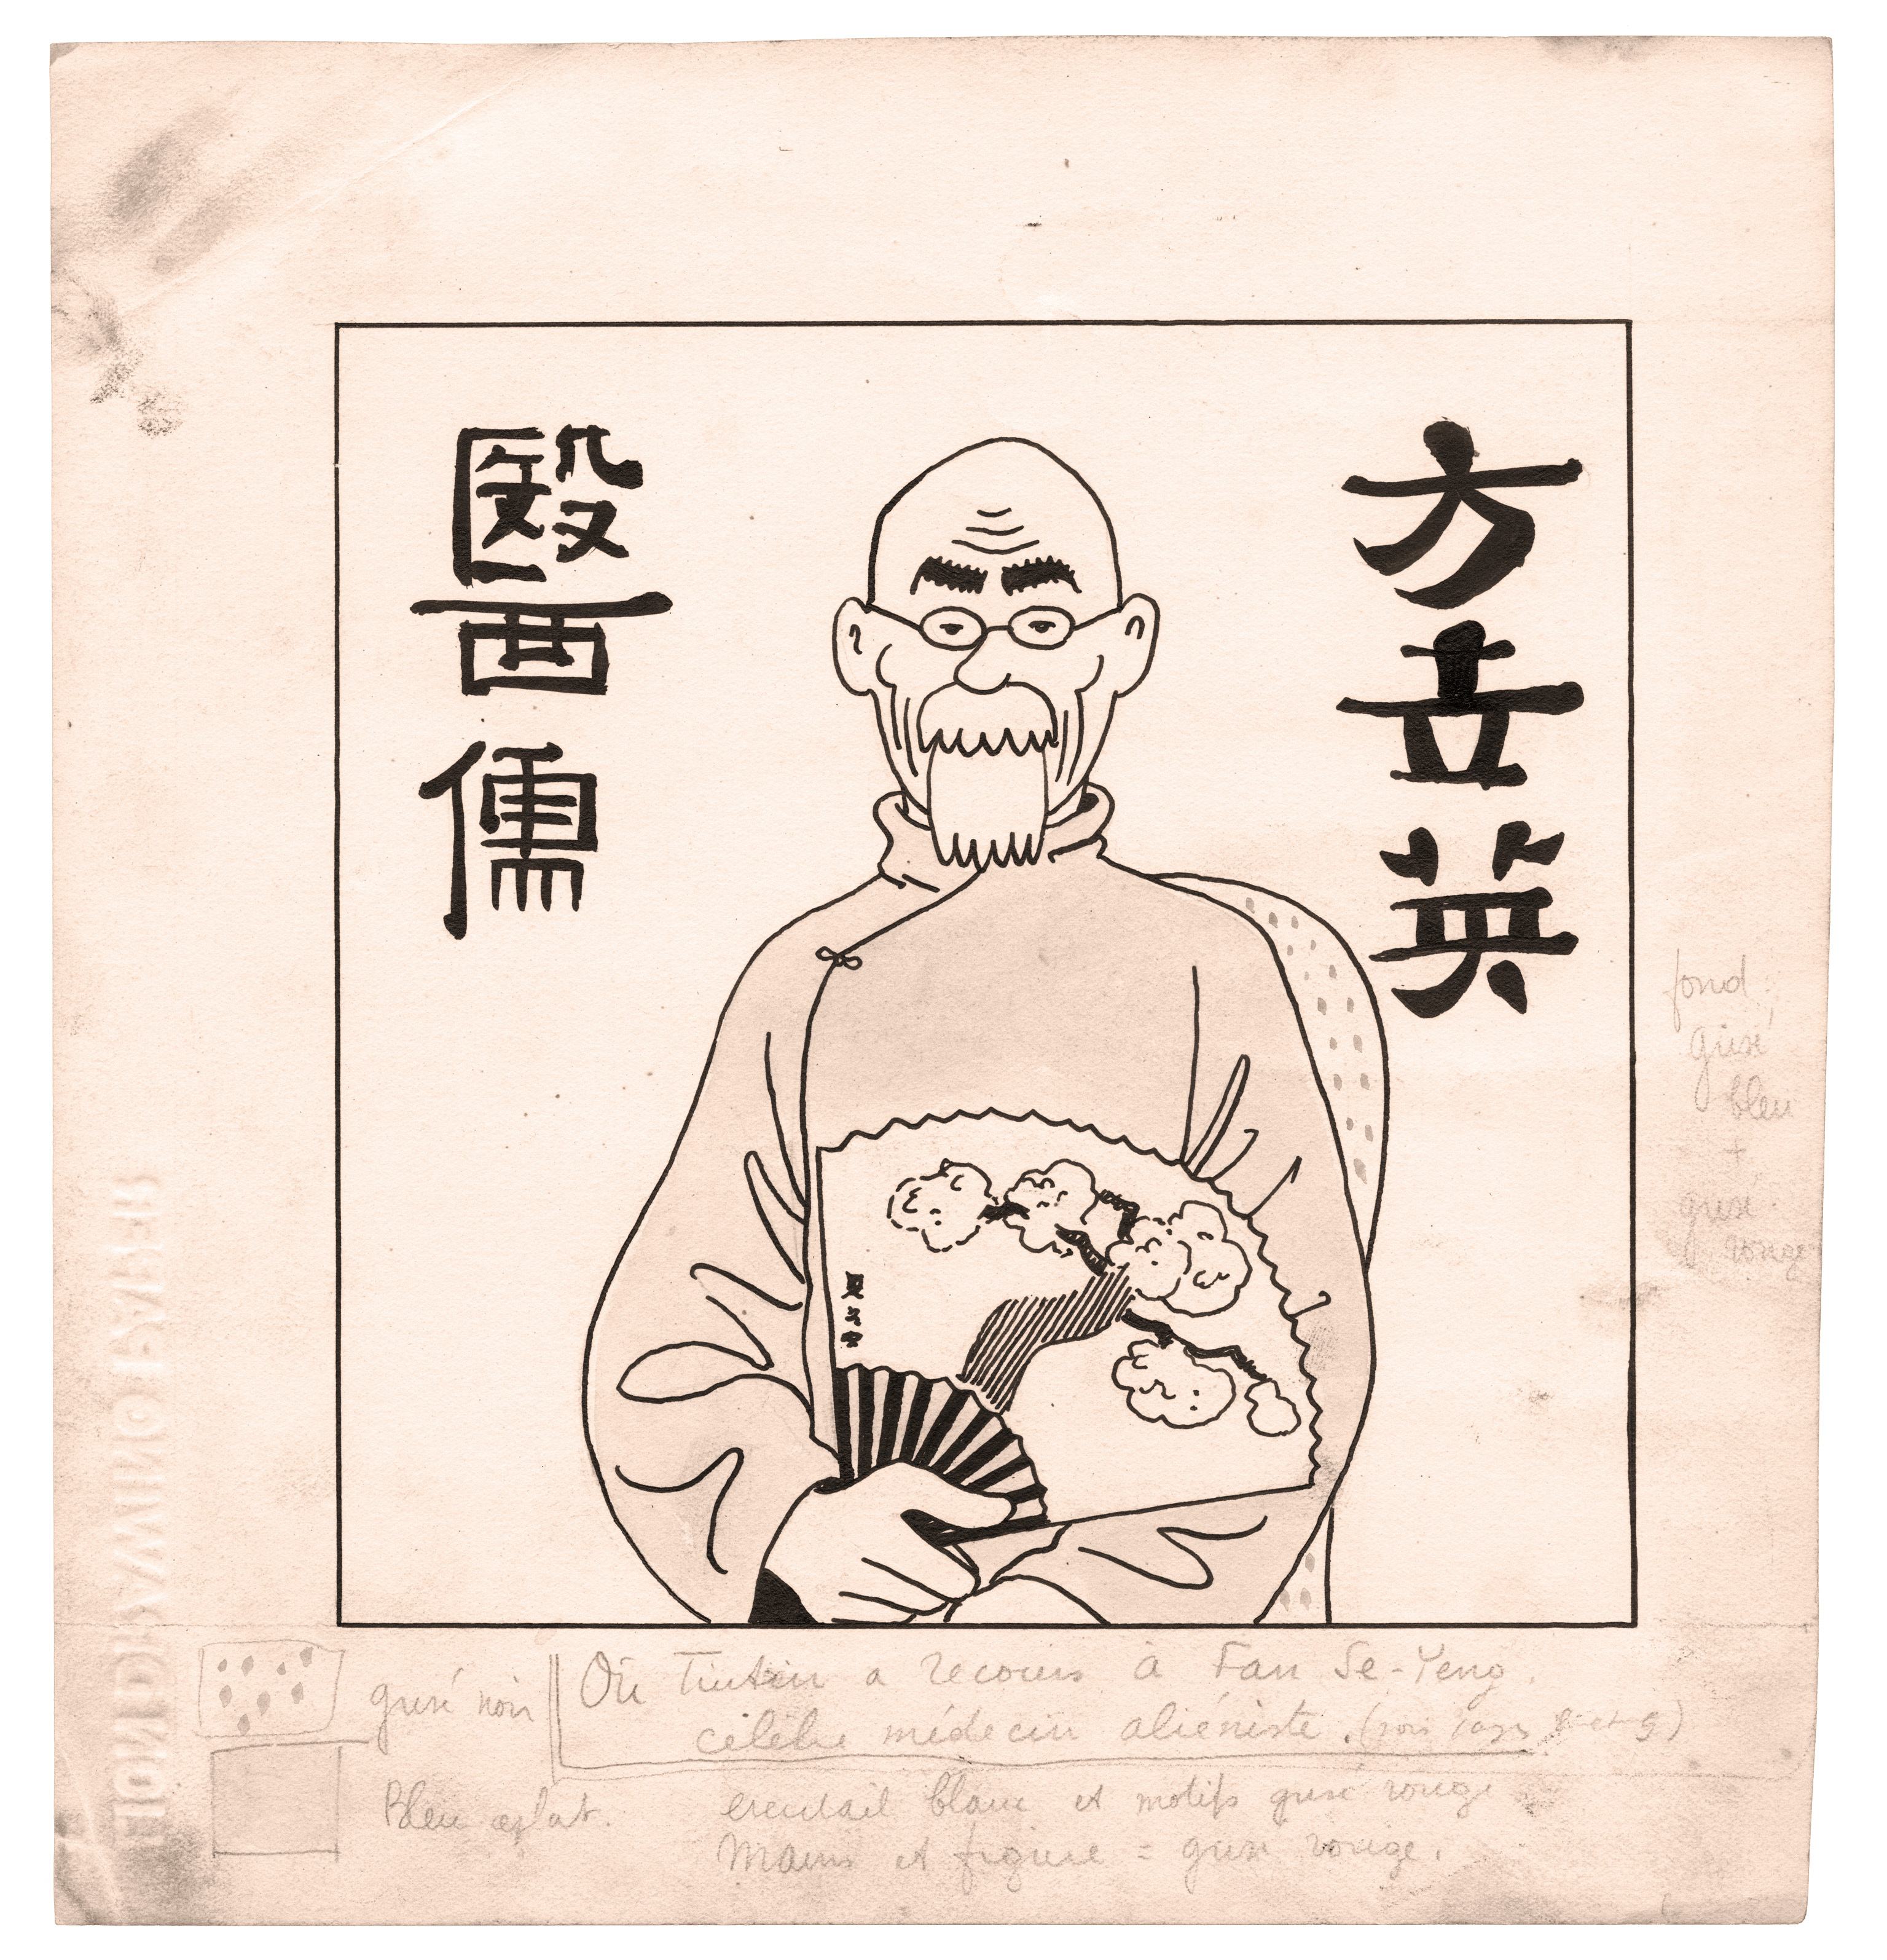 方
英
醫
儒
fond :
grisé
bleu
+
grisé
rouge
grisé noir
Où Tintin a recours à Fan Se-Yeng,
célèbre médecin aliéniste.
Bleu aplat.
éventail blanc et motifs grisé rouge
Mains et figure = grisé rouge.